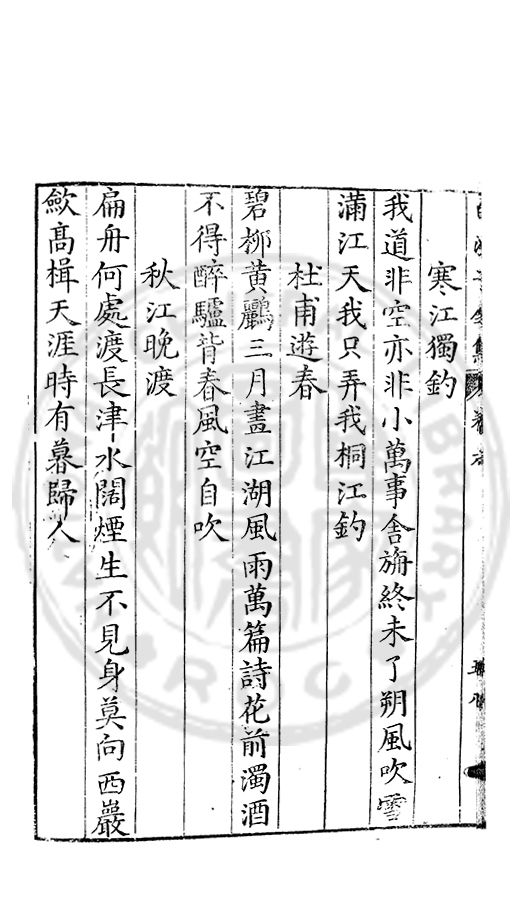 寒江獨釣
我道非空亦非小萬事舍旃終未了朔風吹雪
滿江天我只弄我桐江釣
杜甫遊春
碧柳黃鸝三月晝江湖風雨萬篇詩花前濁酒
不得醉驢背春風空自吹
秋江晚渡
扁舟何處渡長津水闊煙生不見身莫向西巖
歛高楫天涯時有暮歸人